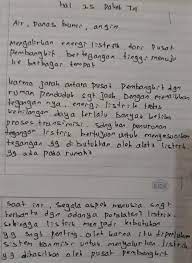 hal 25 Paket IPA
Air, Panas bumi, angin
Mengalirkan energi listrik dari pusat
pembangkit bertegangan tinggi menuju
ke berbagai tempat
karena jarak antara pusat pembangkit dgn
rumah penduduk sgt jauh. Dengan menaikkan
tegangan nya, energi listrik tdk
kehilangan daya terlalu banyak ketika
proses transmisi. Sedangkan penurunan
tegangan listrik bertujuan untuk menyesuaikan
tegangan yg di butuhkan oleh alat listrik
yg ada pada rumah
Saat ini, segala aspek manusia sgt
terbantu dgn adanya peralatan listrik.
sehingga listrik menjadi kebutuhan
yg sgt penting. oleh karena itu diperlukan
sistem transmisi untuk menyalurkan listrik
yg dihasilkan oleh pusat pembangkit